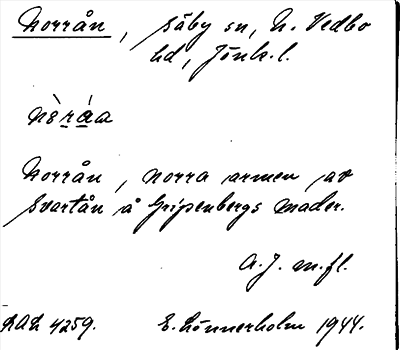 Norrån, Säby sn, N. Vedbo
hd, Jönk. l.
Norrån, norra armen av
Svartån å Gripenbergs mader.
A. J. m. fl.
ULMA 4259. E. Lönnerholm 1944.